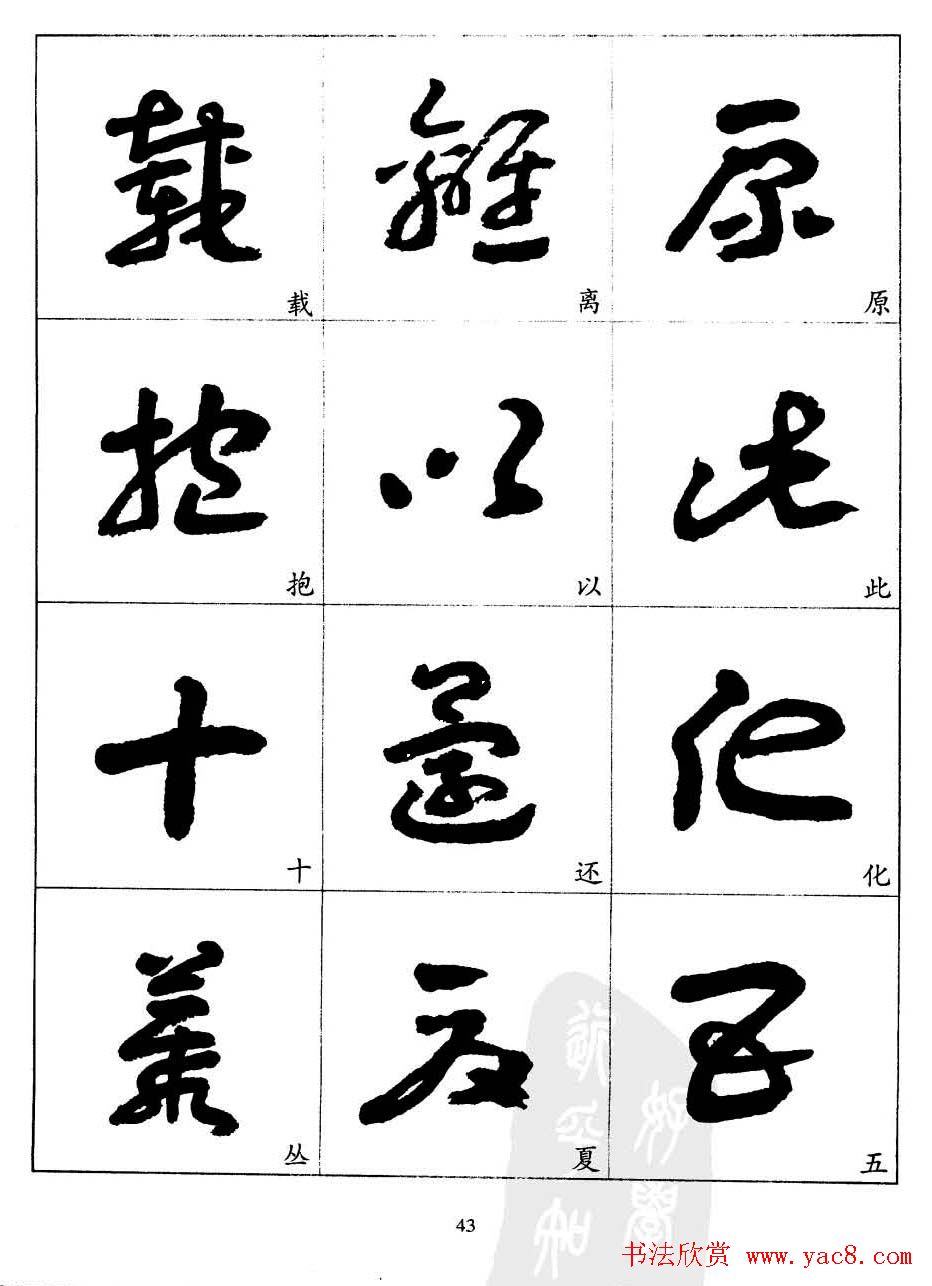 載 離 原
载 离 原
抱 以 此
抱 以 此
十 還 化
十 还 化
叢 夏 五
丛 夏 五
好學
近乎知
43
书法欣赏 www.yac8.com